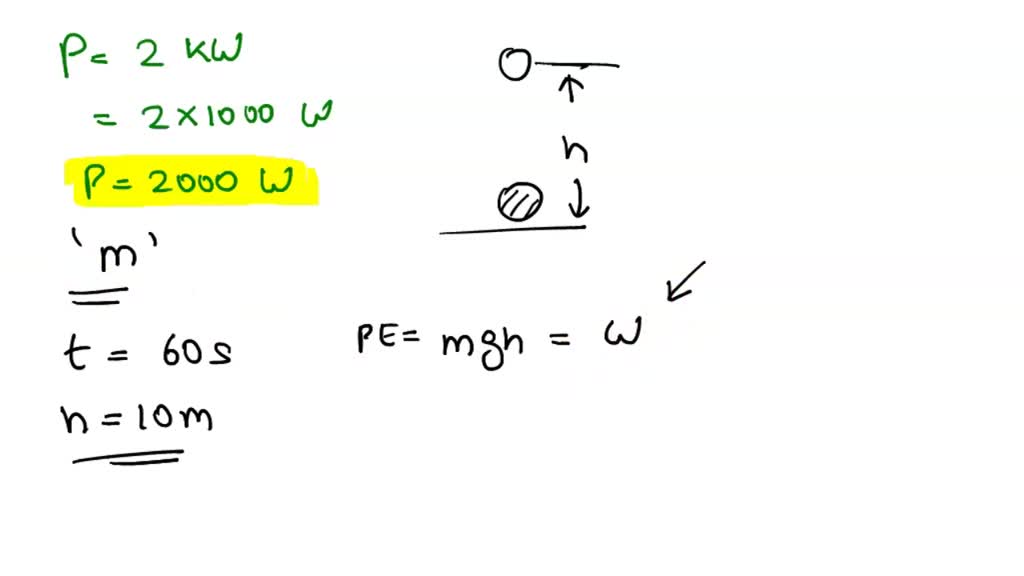 P = 2 KW
= 2 × 1000 W
P = 2000 W
'm'
t = 60 s
h = 10 m
h
PE = mgh = W